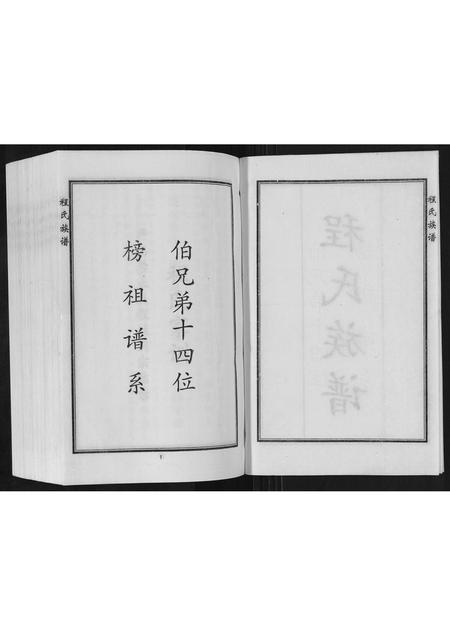 程氏族谱
程氏族谱
伯兄弟十四位
榜祖谱系
程氏族谱